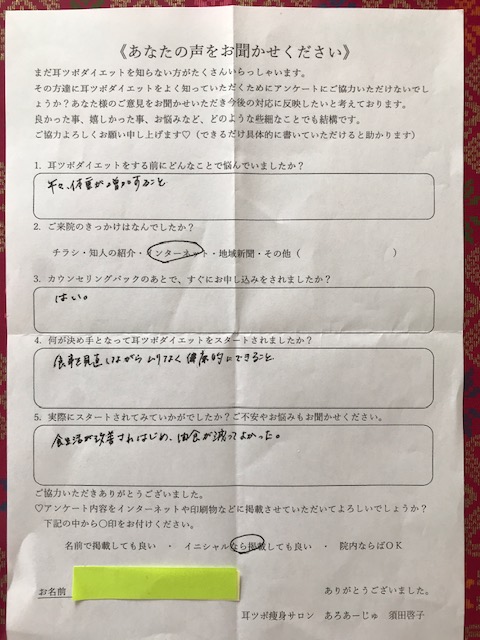 《あなたの声をお聞かせください》
まだ耳ツボダイエットを知らない方がたくさんいらっしゃいます。
その方達に耳ツボダイエットをよく知っていただくためにアンケートにご協力いただけないでし
ょうか？あなた様のご意見をお聞かせいただき今後の対応に反映したいと考えております。
良かった事、嬉しかった事、お悩みなど、どのような些細なことでも結構です。
ご協力よろしくお願い申し上げます♡（できるだけ具体的に書いていただけると助かります）
1. 耳ツボダイエットをする前にどんなことで悩んでいましたか？
年々、体重が増加すること
2. ご来院のきっかけはなんでしたか？
チラシ・知人の紹介・インターネット・地域新聞・その他（　　　　　　　　　）
3. カウンセリングパックのあとで、すぐにお申し込みをされましたか？
はい。
4. 何が決め手となって耳ツボダイエットをスタートされましたか？
食事を見直しながらムリなく健康的にできること
5. 実際にスタートされてみていかがでしたか？ご不安やお悩みもお聞かせください。
食生活が改善されはじめ、間食が減ってよかった。
ご協力いただきありがとうございました。
♡アンケート内容をインターネットや印刷物などに掲載させていただいてよろしいでしょうか？
下記の中から〇印をお付けください。
名前で掲載しても良い　・　イニシャルなら掲載しても良い　・　院内ならばＯＫ
お名前
ありがとうございました。
耳ツボ痩身サロン　あろあーじゅ　須田啓子